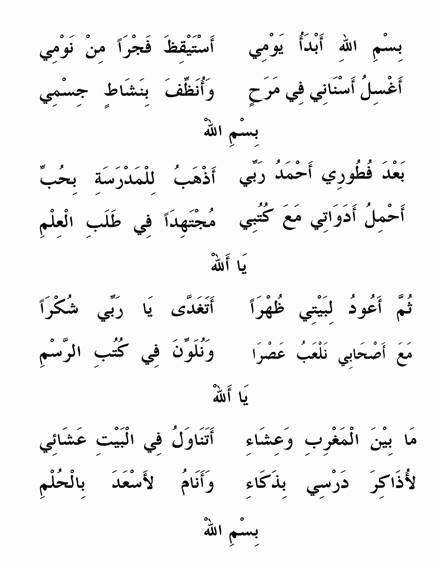 بِسْمِ اللهِ أَبْدَأُ يَوْمِي أَسْتَيْقِظَ فَجْرَاً مِنْ نَوْمِي
أَغْسِلُ أَسْنَانِي فِي مَرَحٍ وَأُنَظِّفَ بِنَشَاطٍ جِسْمِي
بِسْمِ اللهْ
بَعْدَ فُطُورِي أَحْمَدُ رَبِّي أَذْهَبُ لِلْمَدْرَسَةِ بِحُبِّ
أَحْمِلُ أَدَوَاتِي مَعَ كُتُبِي مُجْتَهِدَاً فِي طَلَبِ الْعِلْمِ
يَا أَللهْ
ثُمَّ أَعُودُ لِبَيْتِي ظُهْرَاً أَتَغَدَّى يَا رَبِّي شُكْرَاً
مَعَ أَصْحَابِي نَلْعَبُ عَصْرَا وَنُلَوِّنَ فِي كُتُبِ الرَّسْمِ
يَا أَللهْ
مَا بِيْنَ الْمَغْرِبِ وَعِشَاءِ أَتَنَاوَلُ فِي الْبَيْتِ عَشَائِي
لأُذَاكِرَ دَرْسِي بِذَكَاءِ وَأَنَامُ لأَسْعَدَ بِالْحُلْمِ
بِسْمِ اللهْ